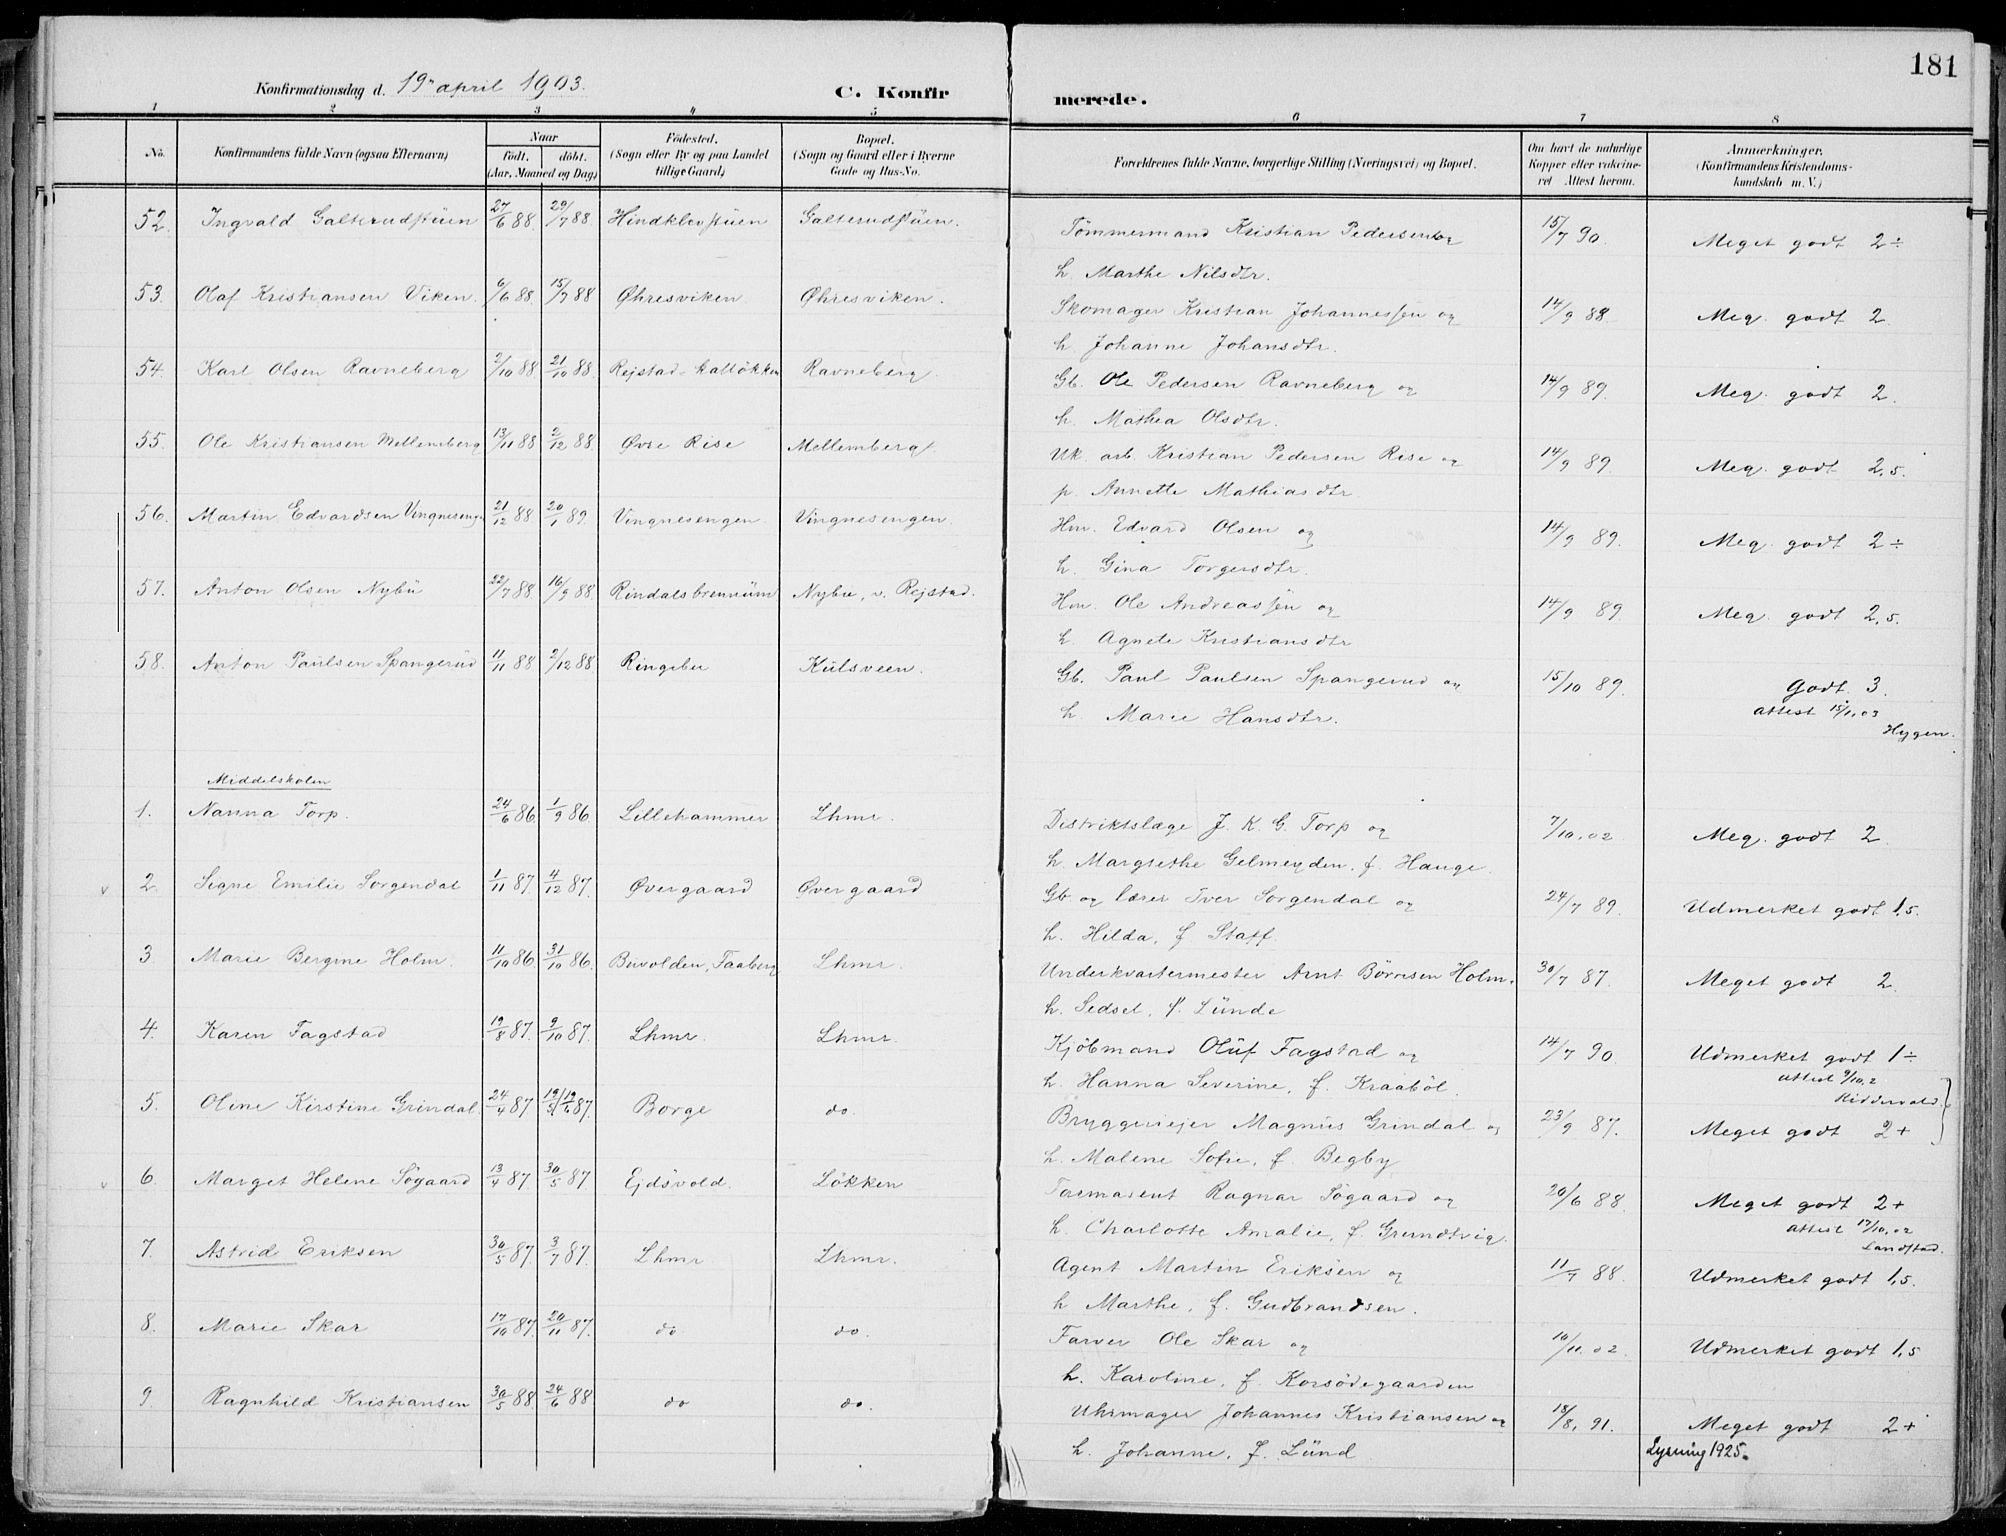 181
Konfirmationsdag d. 19de april 1903. C. Konfirmerede.
1 2 3 4 5 6 7 8
No. Konfirmandens fulde Navn (ogsaa Efternavn) Naar født. døbt. (Aar, Maaned og Dag) Fødested. (Sogn eller By og paa Landet tillige Gaard) Bopæl. (Sogn og Gaard eller i Byerne Gade og Hus-No. Forældrenes fulde Navne, borgerlige Stilling (Næringsvei) og Bopæl. Om havt de naturlige Kopper eller vakcineret. Attest herom. Anmærkninger. (Konfirmandens Kristendomskundskab m. V.)
52. Ingvald Galterudstüen 27/6 88 29/7 88 Hindklevstüen Galterudstüen. Tömmermand Kristian Pedersen og 15/7 90. Meget godt 2÷
h. Marthe Nilsdtr.
53. Olaf Kristiansen Viken. 6/6 88. 15/7 88 Øhresviken Øhresviken. Skomager Kristian Johannessen og 14/9 88 Meg. godt 2.
h. Johanne Johansdtr.
54. Karl Olsen Ravneberg 2/10 88. 21/10 88. Rejstad-kalløkken Ravneberg. Gb. Ole Pedersen Ravneberg og 14/9 89. Meg. godt 2.
h. Mathea Olsdtr.
55. Ole Kristiansen Mellemberg 13/11 88 2/12 88 Øvre Rise Mellemberg. Uk. arb. Kristian Pedersen Rise og 14/9 89. Meg. godt 2,5.
p. Annette Mathiasdtr
56. Martin Edvardsen Vingnesengen 21/12 88 20/1 89. Vingnesengen Vingnesengen Hm. Edvard Olsen og 14/9 89. Meg. godt 2÷
h. Gina Torgersdtr.
57. Anton Olsen Nybü 22/7 88 16/9 88. Rindalsbrennüm Nybu, v. Rejstad. Hm. Ole Andreassen og 14/9 89 Meg. godt 2,5.
h. Agnete Kristiansdtr
58. Anton Paulsen Spangerüd 11/11 88 2/12 88 Ringebu Kulsveen. Gb. Paul Paulsen Spangerud og 15/10 89. Godt. 3.
h Marie Hansdtr. attest 15/1,03
Hygen.
Middelskolen
1. Nanna Torp. 24/6 86 1/9 86 Lillehammer Lhmr. Distriktslæge J. K. G. Torp og 7/10.02 Meg. godt 2
h. Margrethe Gelmeyden. f. Hauge.
v 2. Signe Emilie Sorgendal 1/11 87. 4/12 87. Övergaard Övergaard Gb. og lærer Iver Sorgendal og 24/7 89. Udmerket godt 1,5.
h. Hilda, f Staff.
3. Marie Bergine Holm. 11/10 86. 31/10 86. Buvolden, Faaberg Lhmr. Underkvartermester Arnt Børresen Holm. 30/7 87. Meget godt 2.
h. Sedsel, f. Lünde
4. Karen Fagstad 19/8 87. 9/10 87. Lhmr. Lhmr. Kjöbmand Olüf Fagstad og 14/7 90 Udmerket godt 1÷
h. Hanna Severine, f. Kraaböl. attest 9/10,2
Riddervold.
5. Oline Kirstine Grindal. 24/4 87 19/5 19/6 87. Borge do. Bryggeriejer Magnüs Grindal og 23/9 87. Meget godt 2+
h. Malene Sofie, f. Begby
v 6. Marget Helene Sögaard 13/4 87. 30/5 87. Ejdsvold. Lökken Ragnar Sögaard og 20/6 88. Meget godt 2+
h. Charlotte Amalie, f. Grundtvig. attest 17/10,02
Landstad.
7. Astrid Eriksen 30/5 87. 3/7 87. Lhmr Lhmr. Agent Martin Eriksen og 11/7 88. Udmerket godt 1,5.
h Marthe, f. Gudbrandsen.
8. Marie Skar 17/10 87. 20/11 87. do do. Farver Ole Skar og 10/11.02. Udmerket godt 1,5
h. Karoline, f. Korsödegaarden
9. Ragnhild Kristiansen 30/5 88. 24/6 88 do do. Uhrmager Johannes Kristiansen og 18/8, 91. Meget godt 2+
h. Johanne, f. Lünd Lysning 1925.